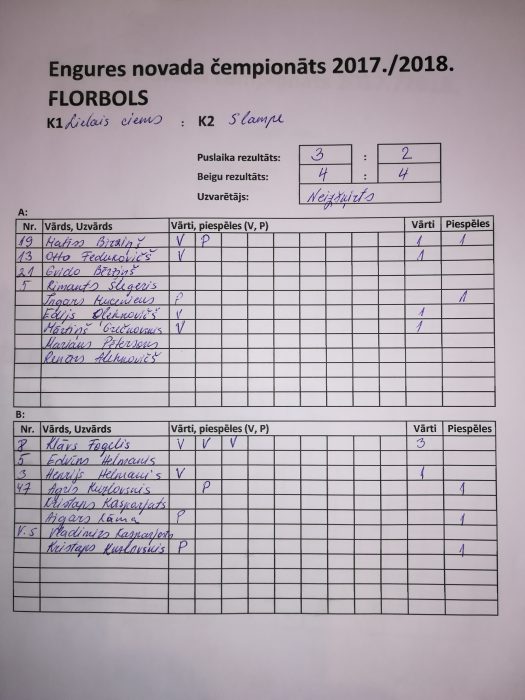 Engures novada čempionāts 2017./2018.
FLORBOLS
K1 Lielais ciems : K2 Slampe
Puslaika rezultāts: 3 : 2
Beigu rezultāts: 4 : 4
Uzvarētājs: Neizšķirts
A:
Nr. Vārds, Uzvārds Vārti, piespēles (V, P) Vārti Piespēles
19 Matīss Bērziņš V P 1 1
13 Otto Fedukovičs V 1
21 Gvido Bērziņš
5 Rimants Šlēģeris
Ingars P 1
Edijs Olehnovičš V 1
Mārtiņš V 1
Mariāns Pētersons
Renārs Alehnovičš
B:
Nr. Vārds, Uzvārds Vārti, piespēles (V, P) Vārti Piespēles
8 Klāvs Fogelis V V V 3
5 Edvīns Helmanis
3 Henrijs Helmanis V 1
47 Agris Kuzlovskis P 1
Kristaps Kasparjāts
Aigars Lāma P 1
V.S Vladimirs Kasparjāts
Kristaps Kuzlovskis P 1